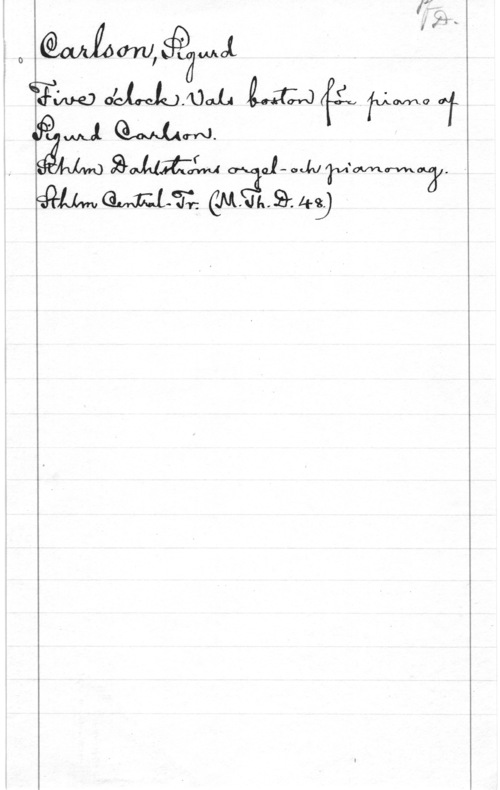 Carlson, Sigurd
Five o'clock. Vals boston för piano af
Sigurd Carlson.
Sthlm Dahlströms orgel- och pianomag.
Sthlm Central-Tr. (M.Th.D. 48.)